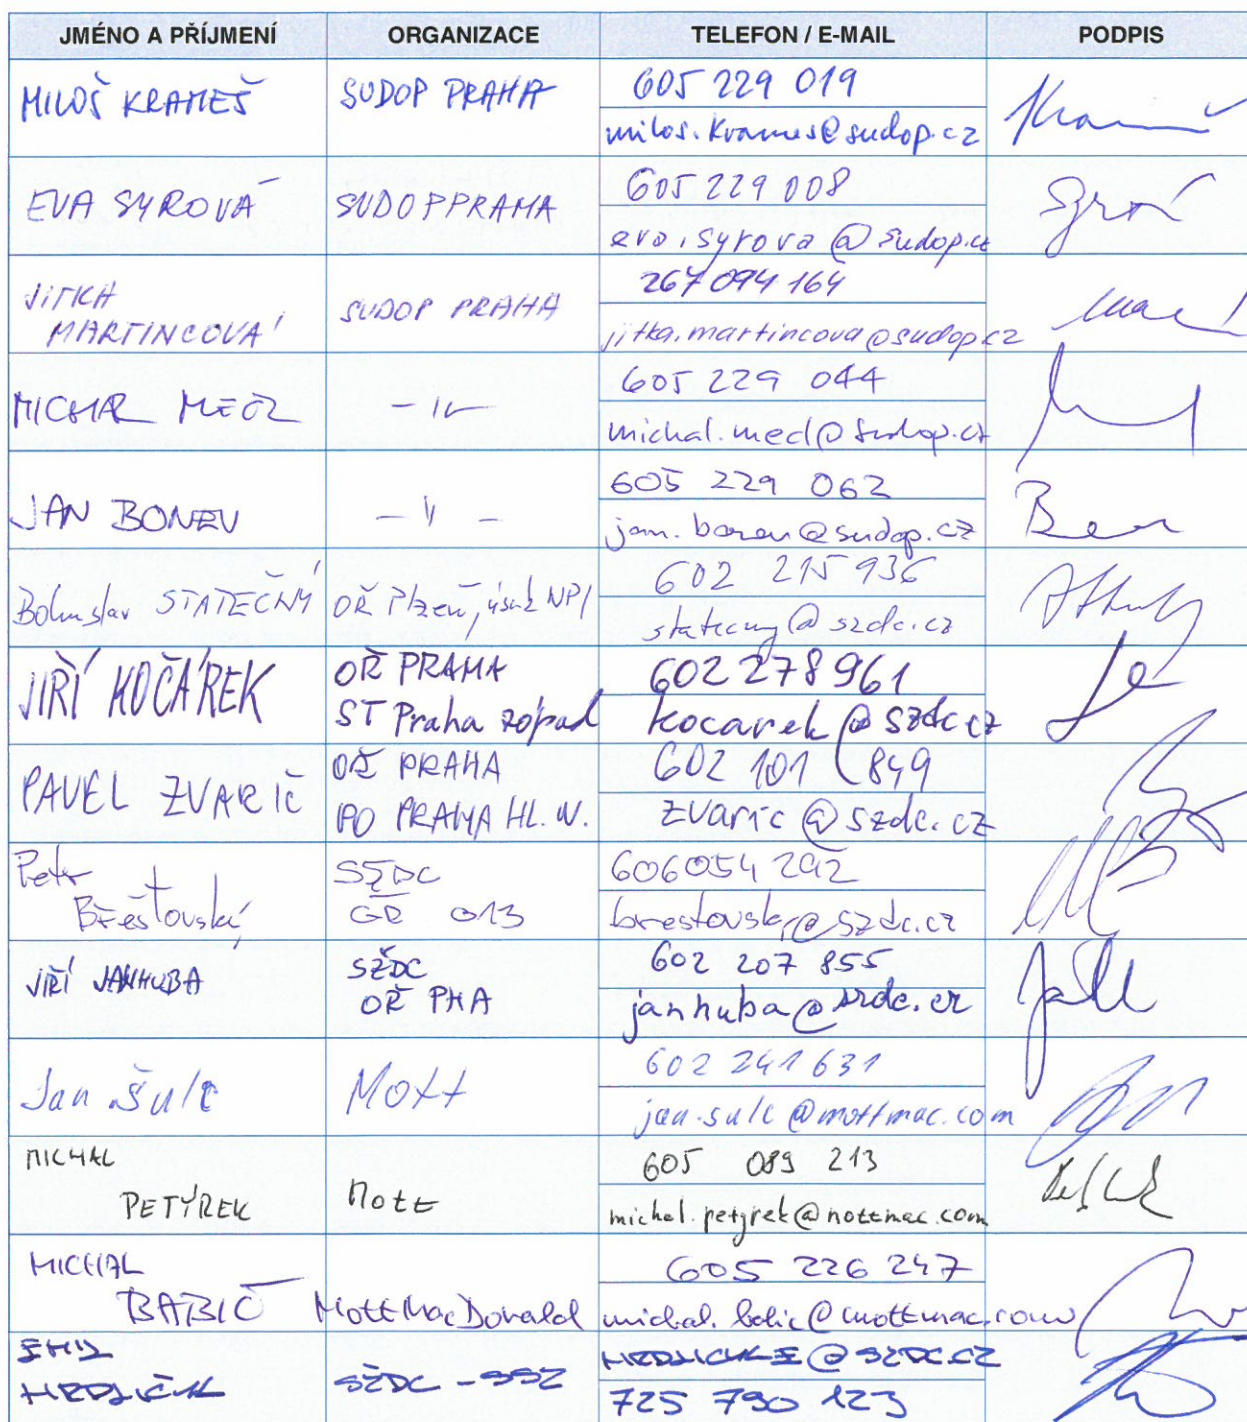 JMÉNO A PŘÍJMENÍ ORGANIZACE TELEFON / E-MAIL PODPIS
MILOŠ KRAMEŠ SUDOP PRAHA 605 229 019
milos.krames@sudop.cz
EVA SYROVÁ SUDOP PRAHA 605 229 008
eva.syrova@sudop.cz
JITKA MARTINCOVÁ SUDOP PRAHA 267 094 164
jitka.martincova@sudop.cz
MICHAL 605 229 044
michal.mecl@sudop.cz
JAN BONEV - 11 - 605 229 062
jan.bonev@sudop.cz
Bohuslav STATEČNÝ OŘ Plzeň, úsek NPI 602 215 936
statecny@szdc.cz
JIŘÍ KOČÁREK OŘ PRAHA 602 278 961
ST Praha západ kocarek@szdc.cz
PAVEL ZVARIČ OŘ PRAHA 602 101 849
PO PRAHA HL. N. zvaric@szdc.cz
Petr SŽDC 606054 292
Břešťovský GŘ 013 brestovsky@szdc.cz
JIŘÍ JANHUBA SŽDC 602 207 855
OŘ PHA janhuba@szdc.cz
Jan Šulc Mott 602 241 631
jan.sulc@mottmac.com
MICHAL 605 089 213
PETÝREK Mott michal.petyrek@mottmac.com
MICHAL 605 226 247
BABIČ Mott MacDonald michal.babic@mottmac.com
EMIL HRDLICKAE@SZDC.CZ
HRDLIČKA SŽDC - SSZ 725 790 123